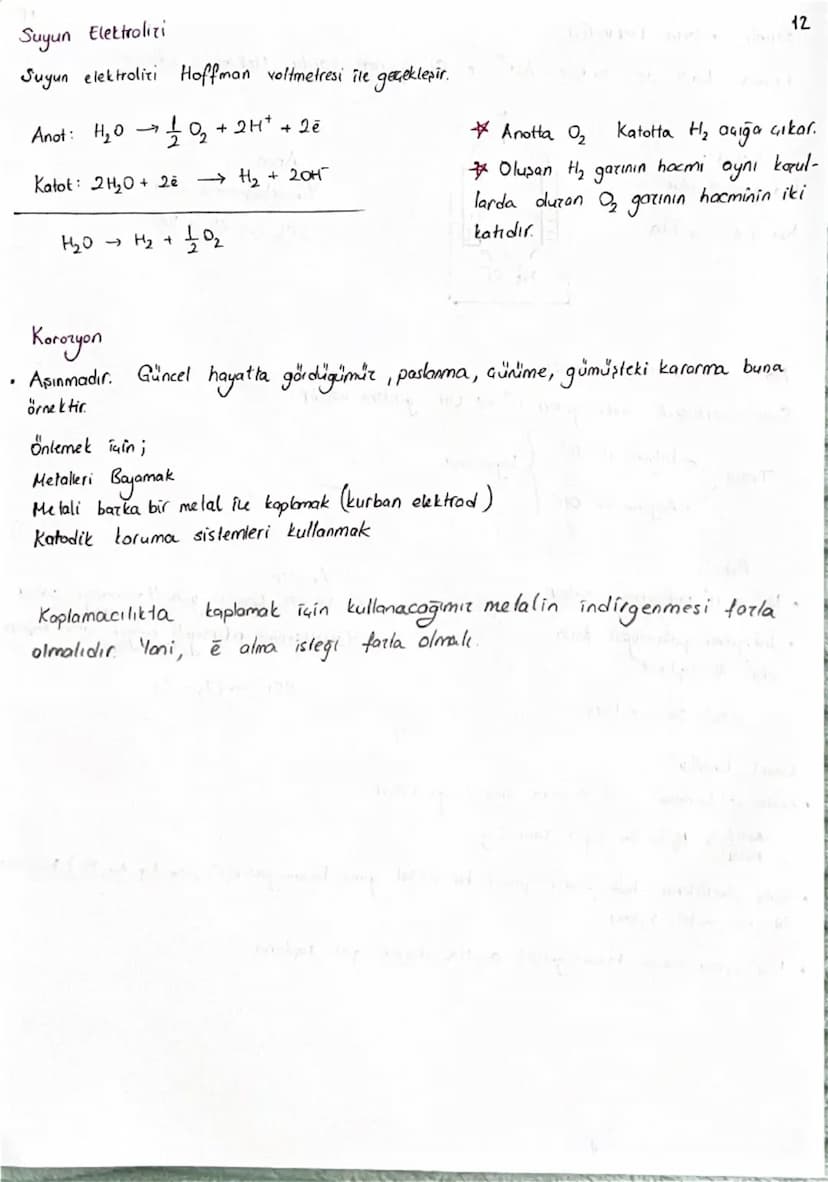 12
Suyun Elektrolizi
Suyun elektrolizi Hoffman voltmetresi ile geçekleşir.
Anot: H₂O → 1/2 O₂ + 2H⁺ + 2ē
Katot: 2H₂O + 2ē → H₂ + 2OH⁻
H₂O → H₂ + 1/2 O₂
* Anotta O₂ Katotta H₂ açığa çıkar.
* Oluşan H₂ gazının hacmi aynı koşul-
larda duran O₂ gazının hacminin iki
katıdır.
Korozyon
• Aşınmadır. Güncel hayatta gördüğümüz, paslanma, çürüme, gümüşteki kararma buna
örnektir.
Önlemek için;
Metalleri Boyamak
Metali başka bir metal ile kaplamak (kurban elektrod)
Katodik koruma sistemleri kullanmak
Kaplamacılıkta kaplamak için kullanacağımız metalin indirgenmesi fazla
olmalıdır. Yani, ē alma isteği fazla olmalı.